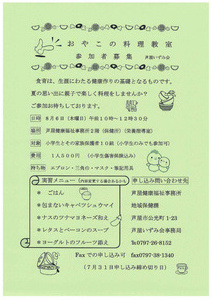 おやこの料理教室
参加者募集 芦屋いずみ会
食育は、生涯にわたる健康作りの基礎となるものです。
夏の思い出に親子で楽しく料理をしませんか?
ご参加お待ちしております。
日時 8月6日(木曜日)午前10時~12時50分
場所 芦屋健康福祉事務所2階(保健所)(栄養指導室)
対象 小学生とその家族保護者10組(小学生のみでも参加可)
費用 1人500円 (小学生傷害保険込み)
持ち物 エプロン・三角巾・マスク・筆記用具
実習メニュー
* ごはん
*包まないキャベツシュウマイ
*ナスのツナマヨネーズ和え
*レタスとベーコンのスープ
*ヨーグルトのフルーツ添え
申し込み問い合わせ先
芦屋健康福祉事務所
地域保健課
芦屋市公光町1-23
芦屋いずみ会事務局
Tel0797-26-8152
Faxでの申し込み可 fax0797-38-1340
(7月31日申し込み締め切り日)